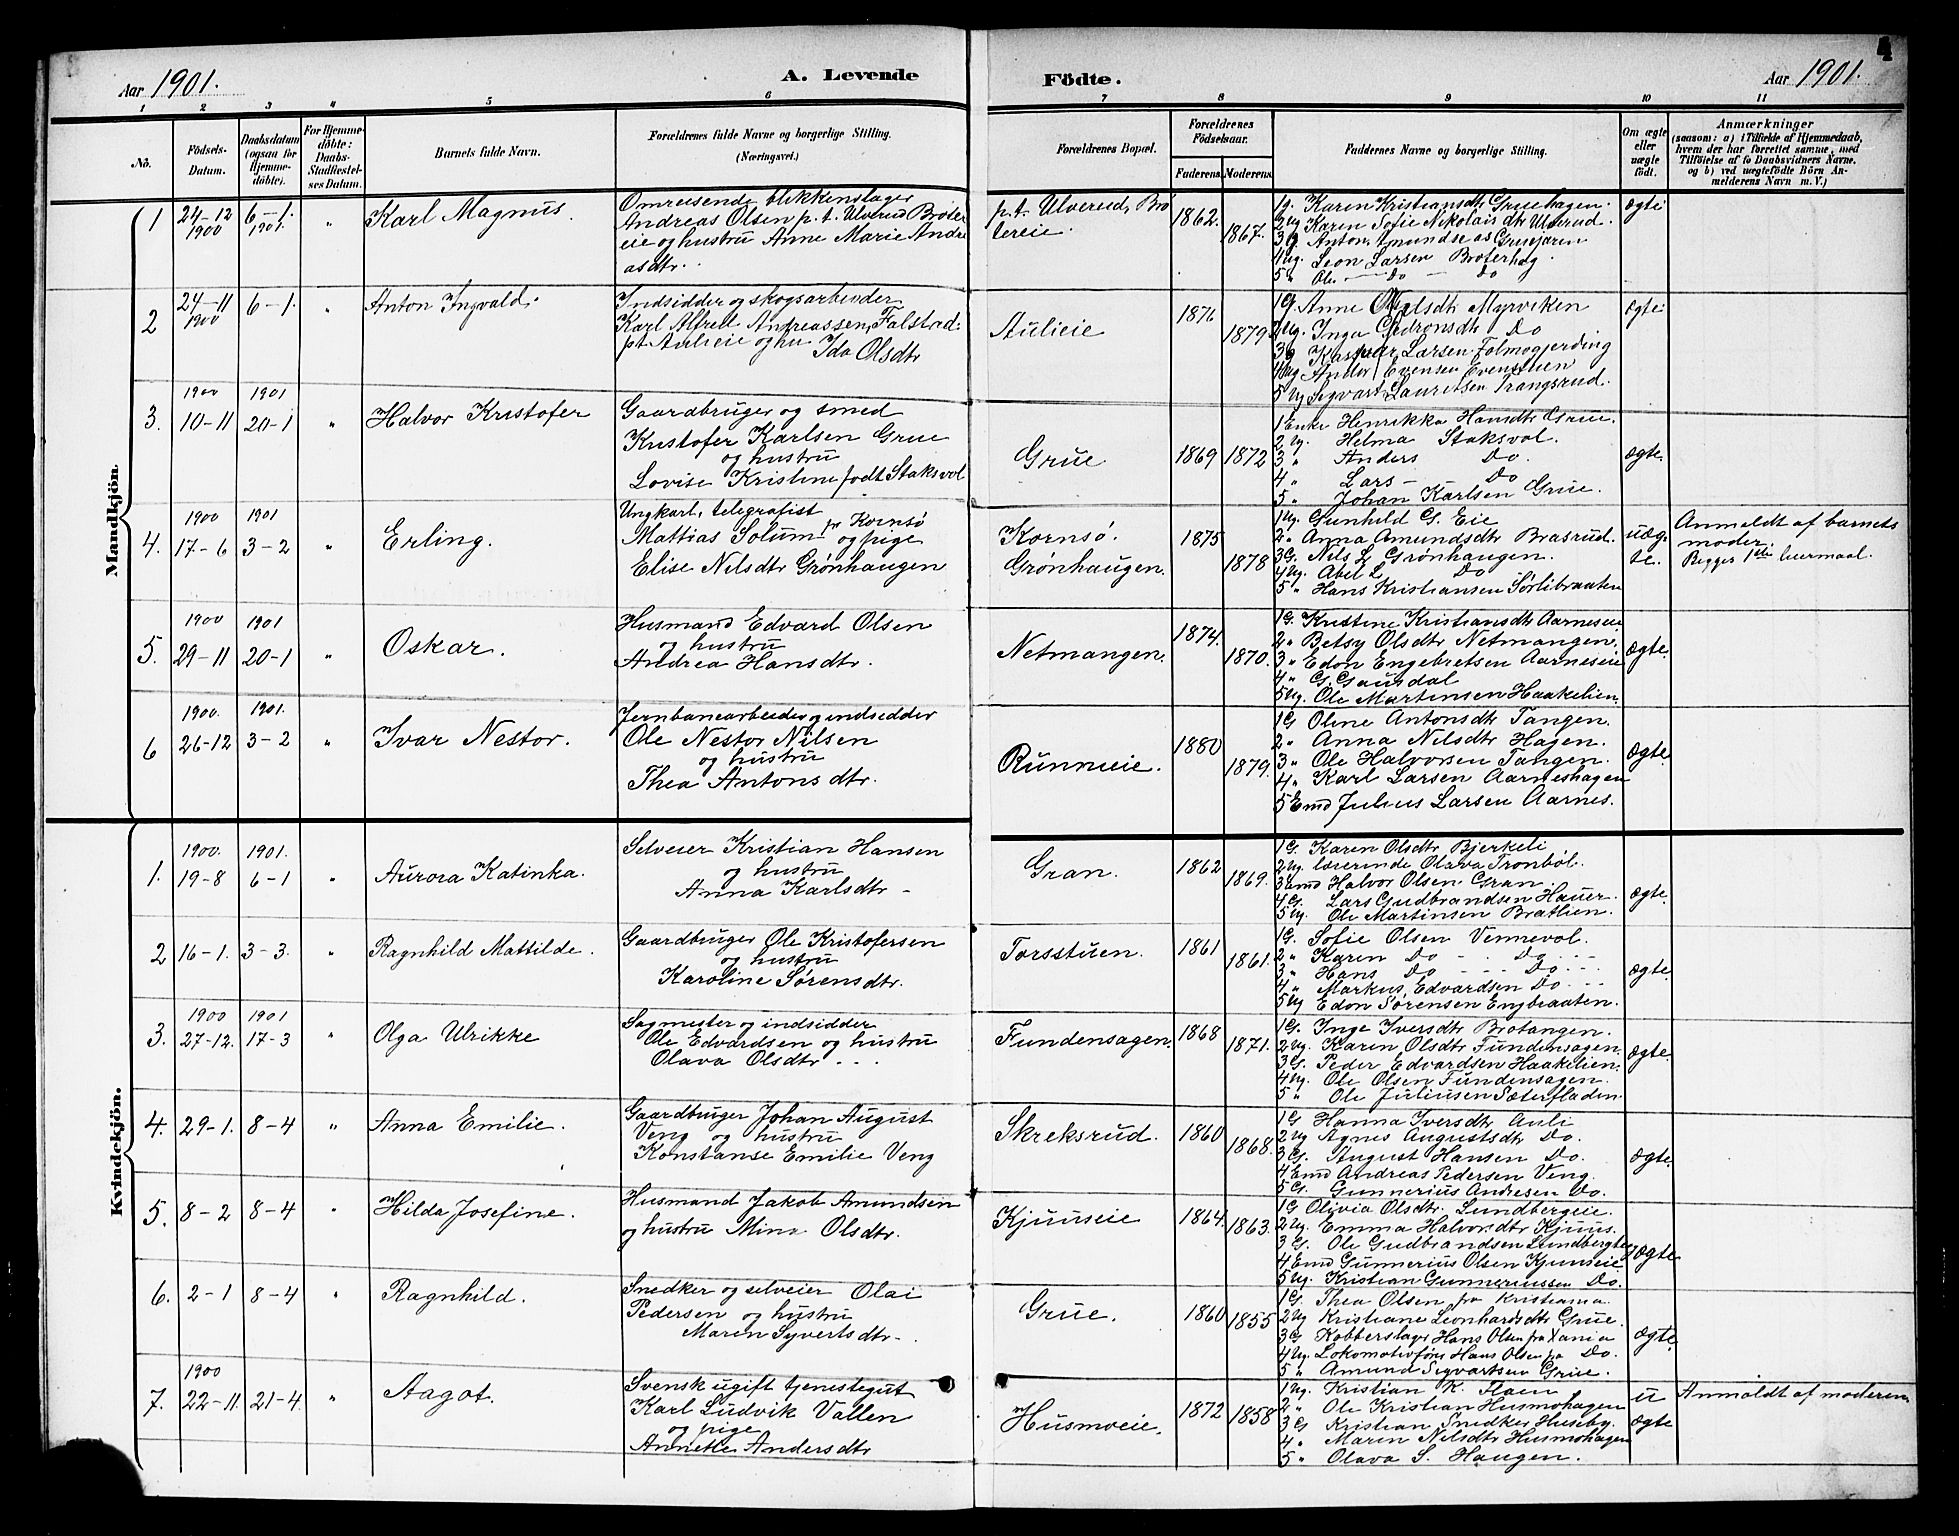 4
Aar 1901.
A. Levende
Födte.
Aar 1901.
1 2 3 4 5 6 7 8 9 10 11
No.
Födsels-Datum.
Daabsdatum (ogsaa for Hjemme-döbte).
For Hjemme-döbte: Daabs-Stadfæstelses Datum.
Barnets fulde Navn.
Forældrenes fulde Navne og borgerlige Stilling.
(Næringsvei.)
Forældrenes Bopæl.
Forældrenes Födselsaar.
Faderens. Moderens.
Faddernes Navne og borgerlige Stilling.
Om ægte eller uægte födt.
Anmærkninger
(saasom: a) i Tilfælde af Hjemmedaab, hvem der har forrettet samme, med Tilföielse af to Daabsvidners Navne. og b) ved uægtefödte Börn Anmelderens Navn m. V.)
Mandkjön
1 24-12 1900 6-1. 1901. " Karl Magnus.
Omreisende blikkenslager
Andreas Olsen p.t. Ulverud Bröte
eie og hustru Anne Marie Andre
asdtr.
p.t. Ulverud, Brö
tereie.
1862. 1867.
1 g. Karen Kristiansdtr Gruehagen.
2 ug Karen Sofie Nikolaisdtr Ulverud.
3 g. Anton Amundsen
4 ug. Leon Larsen Bröterhag.
5 " Ole — Do — Do
ægte
2 24-11 1900 6-1. " Anton Ingvald.
Indsidder og skogsarbeider
Karl Alfred Andreassen, Falstad
pt Aulieie og hu Ida Olsdtr
Aulieie
1876 1879
1 G. Anne Olsdtr Myrviken
2 ug. Inga Do
3 g Kasper Larsen Folmogjerding
4 ug Andor Evensen Evenstuen
5 ug Sigvart Lauritsen Trangsrud.
ægte
3. 1900 10-11 1901 20-1 " Halvor Kristofer
Gaardbruger og smed
Kristofer Karlsen Grue
og hustru
Lovise Kristine født Staksvol
Grue
1869 1872
1 Enke Henrikka Hansdtr Grue.
2 ug. Helma Staksvol.
3 " Anders Do.
4 " Lars — Do
5 " Johan Karlsen Grue.
ægte.
4. 1900 17-6 1901 3-2 " Erling.
Ungkarl, telegrafist
Mattias Solum fr Kornsø
og pige
Elise Nilsdtr Grønhaugen
Kornsø.
Grønhaugen.
1875 1878
1 ug. Gunhild G. Eie
2 " Anna Amundsdtr Brasrud.
3 G. Nils L Grønhaugen.
4 ug. Abel L Do
5 " Hans Kristiansen Sørlibraaten
uæg-
te.
Anmeldt af barnets
moder.
Begges 1ste leiermaal.
5. 1900 29-11 1901 20-1 " Oskar.
Husmand Edvard Olsen
og hustru
Andrea Hansdtr.
Netmangen.
1874. 1870.
1 G. Kristine Kristiansdtr Aarneseie
2 " Betsy Olsdtr Netmangen.
3 " Edon Engebretsen Aarneseie
4 " G. Gausdal
5 ug. Ole Martinsen Haakelien.
ægte.
6 1900. 26-12 1901. 3-2 " Ivar Nestor.
Jernbanearbeider og indsidder
Ole Nestor Nilsen
og hustru
Thea Antonsdtr.
Runneie.
1880 1879.
1 G Oline Antonsdtr Tangen.
2 " Anna Nilsdtr Hagen.
3 " Ole Halvorsen Tangen.
4 " Karl Larsen Aarneshagen
5 Emd Julius Larsen Aarnes.
ægte.
Kvindekjön.
1. 1900. 19-8 1901. 6-1 " Aurora Katinka.
Selveier Kristian Hansen
og hustru
Anna Karlsdtr -
Gran.
1862 1869.
1 G. Karen Olsdtr Bjerkeli
2 ug. lærerinde Olava Tronbøl.
3 Emd Halvor Olsen Gran
4 G. Lars Gudbrandsen Hauer.
5 ug. Ole Martinsen Bratlien.
ægte.
2 16-1. 3-3. " Ragnhild Mattilde.
Gaardbruger Ole Kristofersen
og hustru
Karoline Sørensdtr.
Torsstuen.
1861 1861.
1 G. Sofie Olsen Vennevol.
2 " Karen Do - Do
3 " Hans Do - Do
4 " Markus Edvardsen Do
5 ug Edon Sørensen Engbraaten.
ægte.
3. 1900 27-12. 1901 17-3 " Olga Ulrikke
Sagmester og indsidder
Ole Edvardsen og hustru
Olava Olsdtr - - -
Fundensagen.
1868 1871.
1 G. Inge Iversdtr Brotangen.
2 ug. Karen Olsdtr Fundensagen.
3 G. Peder Edvardsen Haakelien.
4 ug. Ole Olsen Fundensagen.
5 " Ole Juliusen Sæterfladen.
ægte.
4. 29-1. 8-4 " Anna Emilie.
Gaardbruger Johan August
Veng og hustru
Konstanse Emilie Veng
Skreksrud.
1860 1868.
1 G Hanna Iversdtr Auli
2 ug Agnes Augustsdtr Do.
3 G. August Hansen Do.
4 Emd Andreas Pedersen Veng.
5 G. Gunnerius Andresen Do.
ægte.
5. 8-2 8-4 " Hilda Josefine.
Husmand Jakob Amundsen
og hustru Mina Olsdtr.
Kjuuseie
1864. 1863.
1 G Olivia Olsdtr. Lundbergeie.
2 ug. Emma Halvorsdtr Kjuus.
3 G. Ole Gudbrandsen Lundberg
4 Emd Gunnerius Olsen Kjuuseie
5 ug. Kristian Gunneriussen Do.
ægte
6. 2-1 8-4 " Ragnhild.
Snedker og selveier Olai
Pedersen og hustru
Maren Syvertsdtr -
Grue.
1860 1855
1 G. Thea Olsen fra Kristiania
2 ug Kristiane Leonhardsdtr Grue.
3 G Kobberslager Hans Olsen fra Xania
4 ug. Lokomotivfører Hans Olsen fra Do.
5 " Amund Sigvartsen Grue.
ægte
7. 1900 22-11. 21-4. " Aagot.
Svensk ugift tjenestegut
Karl Ludvik Vallen
og pige
Annette Andersdtr
Husmoeie.
1872 1858
1 ug. Kristian K. Floen
2 " Ole Kristian Husmohagen
3 G Kristian Snedker Huseby.
4 " Maren Nilsdtr Husmohagen
5 " Olava S. Haugen.
u
ægte
Anmeldt af moderen